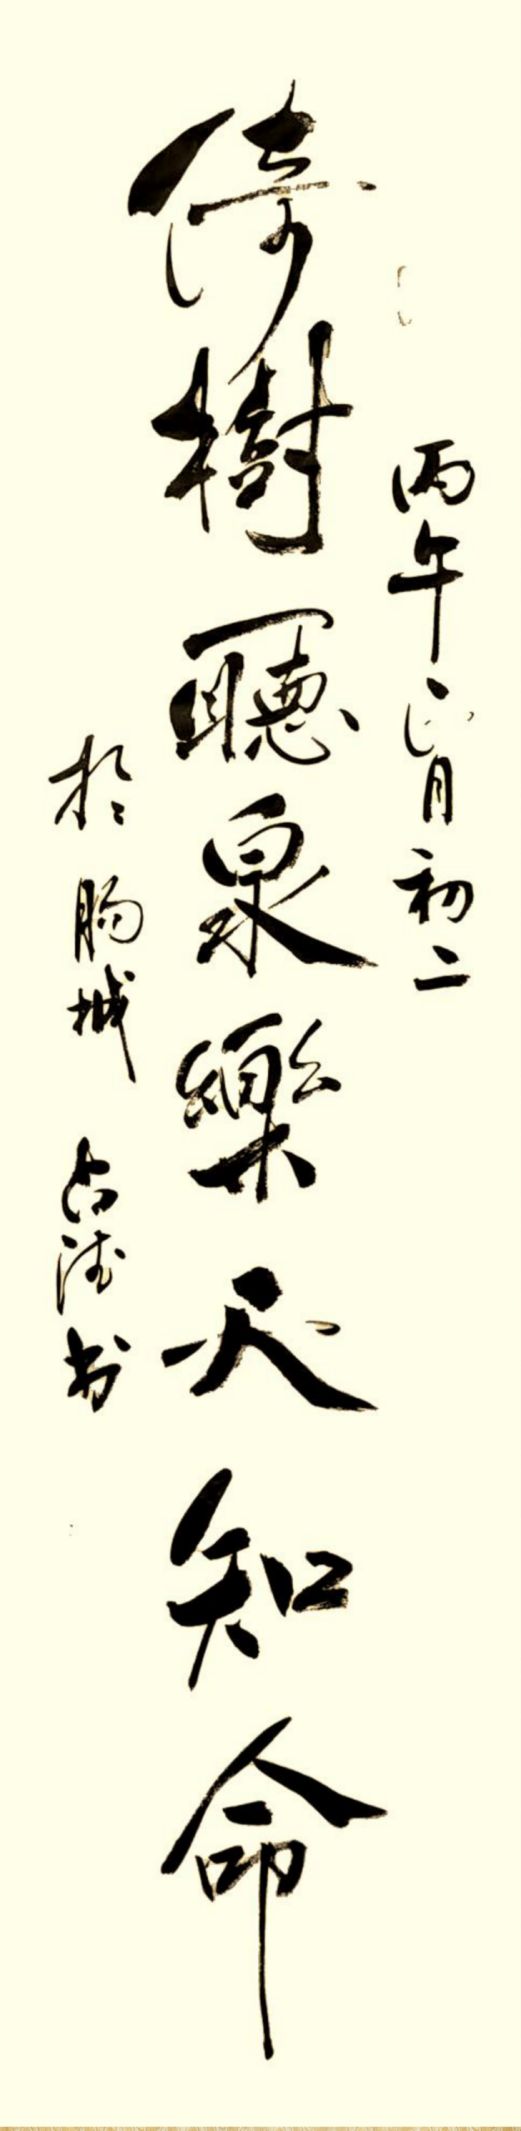 丙午正月初二
倚樹聽泉樂天知命
於 城 占 书